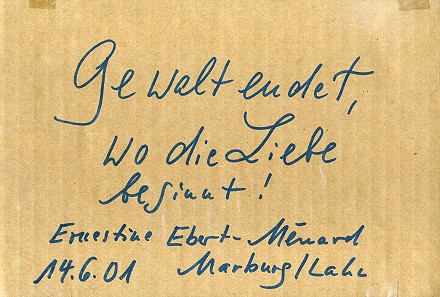 Gewalt endet,
wo die Liebe
beginnt!
Ernestine Ebert-Ménard
14.6.01 Marburg/Lahn